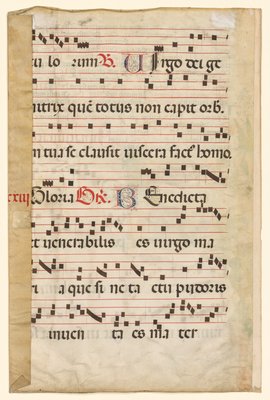 tu lo rum R. Virgo dei ge
nitrix quē totus non capit orb.
in tua se clausit viscera facť homo.
cxiij Gloria V. Benedicta
et venerabilis es virgo ma
ri a que si ne ta ctu pudoris
inven ta es ma ter